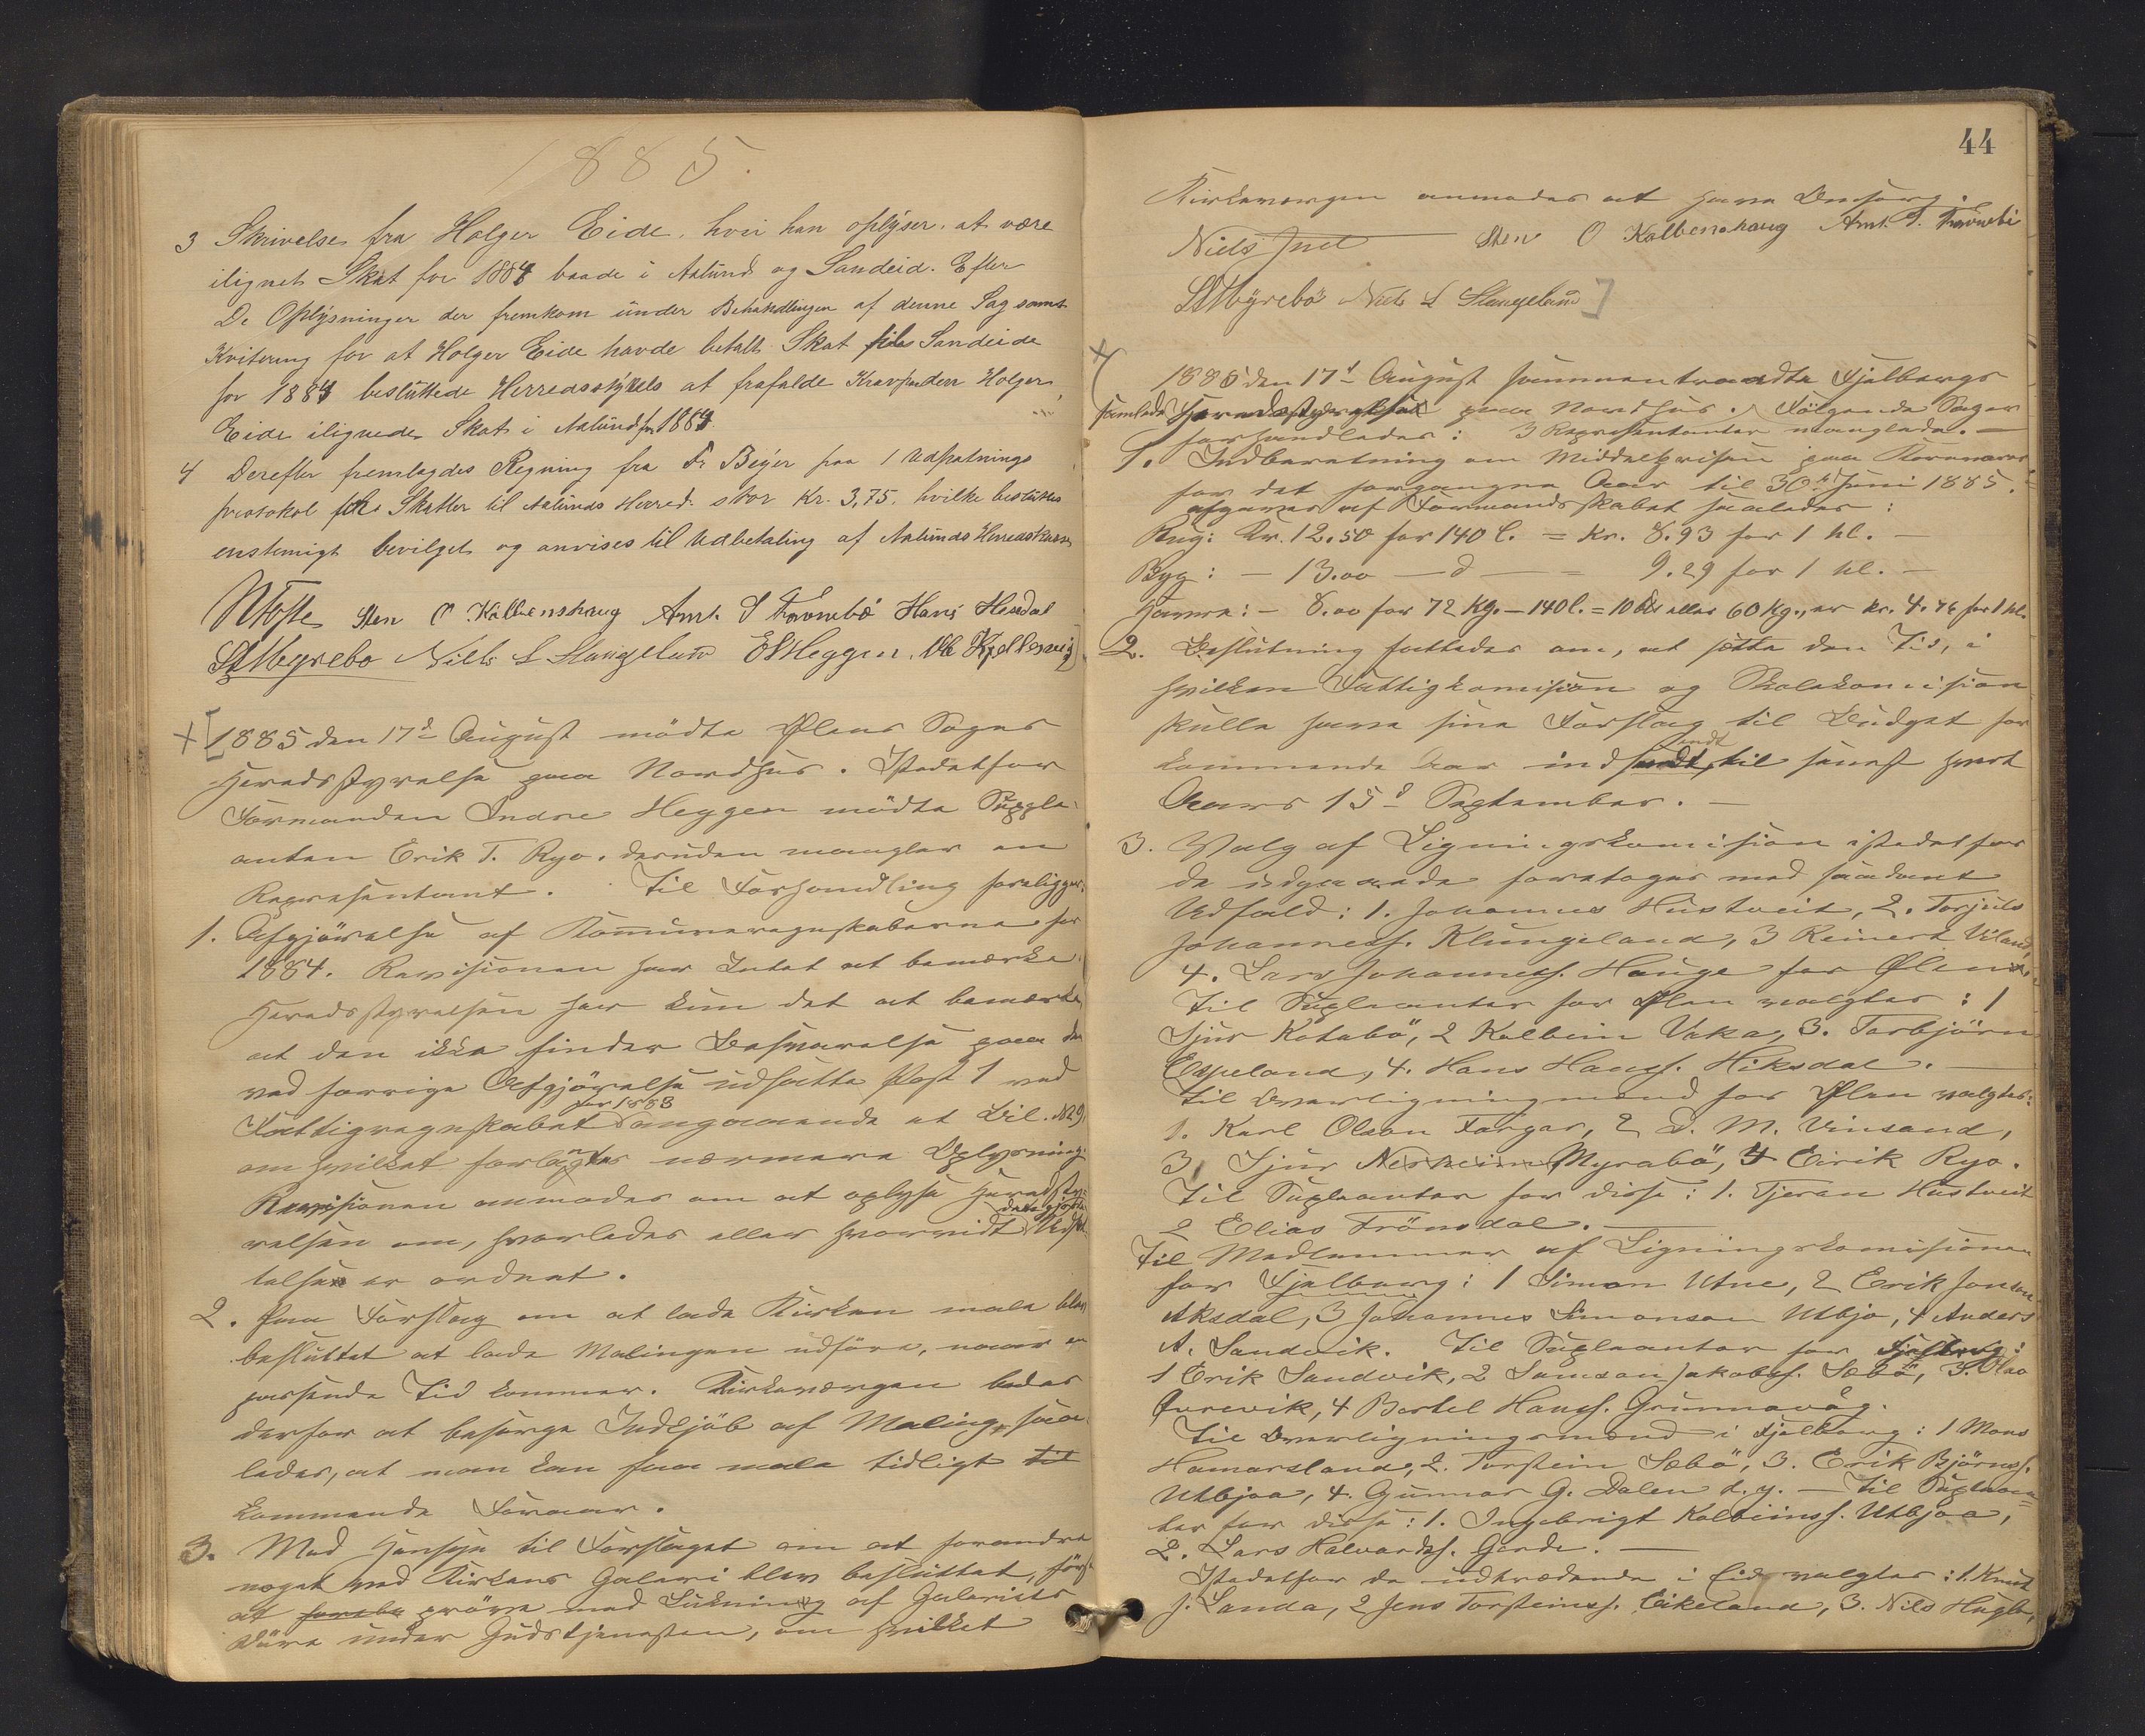 1885.
3 Skrivelse fra Holger Eide, hvori han oplyser, at være
ilignet Skat for 1884 baade i Aalund og Sandeid. Efter
De Oplysninger der fremkom under Behandlingen af denne Sag samt
Kvitering for at Holger Eide havde betalt Skat til Sandeide
for 1884 besluttede Herredsstyrels at frafalde Kravet paa den Holger
Eide ilignede Skat i Aalund for 1884.
4 Derefter fremlagdes Regning fra Fr Beyer paa 1 Udpatnings
protokol for Skatter til Aalunds Herred. stor Kr. 3,75. hvilke besluttes
enstemigt bevilget og anvises til Udbetaling af Aalunds Herredskasse
Sten O Kalbenshaug Amt. S Tavnebö Hans Hesdal
Myrebø Niels L Slangeland E Heggen. Ole Kjellesvig
1885 den 17d August mödte Ølens Sogns
Heredsstyrelse paa Nordhus. Istedetfor
Formanden Endre Heggen mödte Supple-
anten Erik T. Ryo. desuden mangler en
Repræsentant. Til Forhandling foreligger:
1. Afgjörelse af Komuneregnskaberne for
1884. Revisionen har Intet at bemærke.
Heredsstyrelsen har kun det at bemærke,
at den ikke finder Besvarelse paa den
ved forrige Afgjörelse udsatte Post 1 ved
Fattigregnskabet for 1883 angaaende at Bil. No 29
om hvilket forlangtes nærmere Oplysning.
Revisionen anmodes om at oplyse Heredssty-
relsen om, hvorledes eller hvorvidt denne
telse er ordnet.
2. Paa Forslag om at lade Kirken male blev
besluttet at lade Malingen udföre, naar en
passende Tid kommer. Kirkeværgen bedes
derfor at besørge Indkjöb af Maling, saa-
ledes, at man kan faa male tidligt til
kommende Foraar.
3. Med Hensyn til Forslaget om at forandre
noget ved Kirkens Galeri blev besluttet, först
at prøve med Lukning af Galeriets
Döre under Gudstjenesten, om hvilket
44
Kirkeværgen anmodes at have Omsorg.
Niels Juel Sten O Kalbenshaug Amt. S. Tavnebö
Myrebö Niels L Slangeland
1885 den 17d August sammentraadte Fjelbergs
samlede Heredsstyrelse paa Nordhus. Følgende Sager
forhandledes: 3 Repræsentanter manglede. —
1. Indberetning om Middelprisen paa Kornvarer
for det forgangne Aar til 30te Juni 1885.
afgives af Formandskabet saaledes:
Rug: Kr. 12.50 for 140 l. = Kr. 8.93 for 1 hl. —
Byg: — 13.00 — d — = 9.29 for 1 hl. —
Havre: — 8.00 for 72 Kg. — 140 l. = 10 eller 60 Kg., er kr. 4.76 for 1 hl.
2. Beslutning fattedes om, at sætte den Tid, i
hvilken Fattigkomision og Skolekomision
skulle have sine Forslag til Budget for
kommende Aar indsendt, til senest hvert
Aars 15d September. —
3. Valg af Ligningskomision istedetfor
de udgaaede foretoges med saadant
Udfald: 1. Johannes Hustveit, 2. Torjuls
Johanness. Klungeland, 3 Reinert Viland,
4. Lars Johanness. Hauge for Ølen.
Til Supleanter for Ølen valgtes: 1
Sjur Kotabö, 2 Kolbein Vaka, 3. Torbjörn
Espeland, 4. Hans Hanss. Hiksdal. —
Til Overligningsmænd for Ølen valgtes:
1. Karl Olson Fargar, 2 D. M. Vinsand,
3, Sjur Nesheim Myrabö, 4 Eirik Ryo.
Til Supleanter for disse: 1. Tjeran Hustveit
2 Elias Frönsdal. —
Til Medlemmer af Ligningskomisionen
for Fjelberg: 1 Simon Utne, 2 Erik Jonson
Aksdal, 3 Johannes Simonson Utbjo, 4 Anders
A. Sandvik. Til Supleanter for Fjelberg:
1 Erik Sandvik, 2 Samson Jakobs. Sæbö, 3. Olao
Kvrevik, 4 Bertel Hanss. Grunnavåg.
Til Overligningsmænd i Fjelberg: 1 Mons
Hamarsland, 2. Torstein Sæbö, 3. Erik Björnss.
Utbjoa, 4. Gunnar G. Dalen d. y. — Til Suplean-
ter for disse: 1. Ingebrigt Kolbeinss. Utbjoa,
2. Lars Halvards. Gerde. —
Istedetfor de udtrædende i Eid valgtes: 1. Knut
J. Landa, 2 Jens Torsteinss. Eikeland, 3. Nils Hagla,